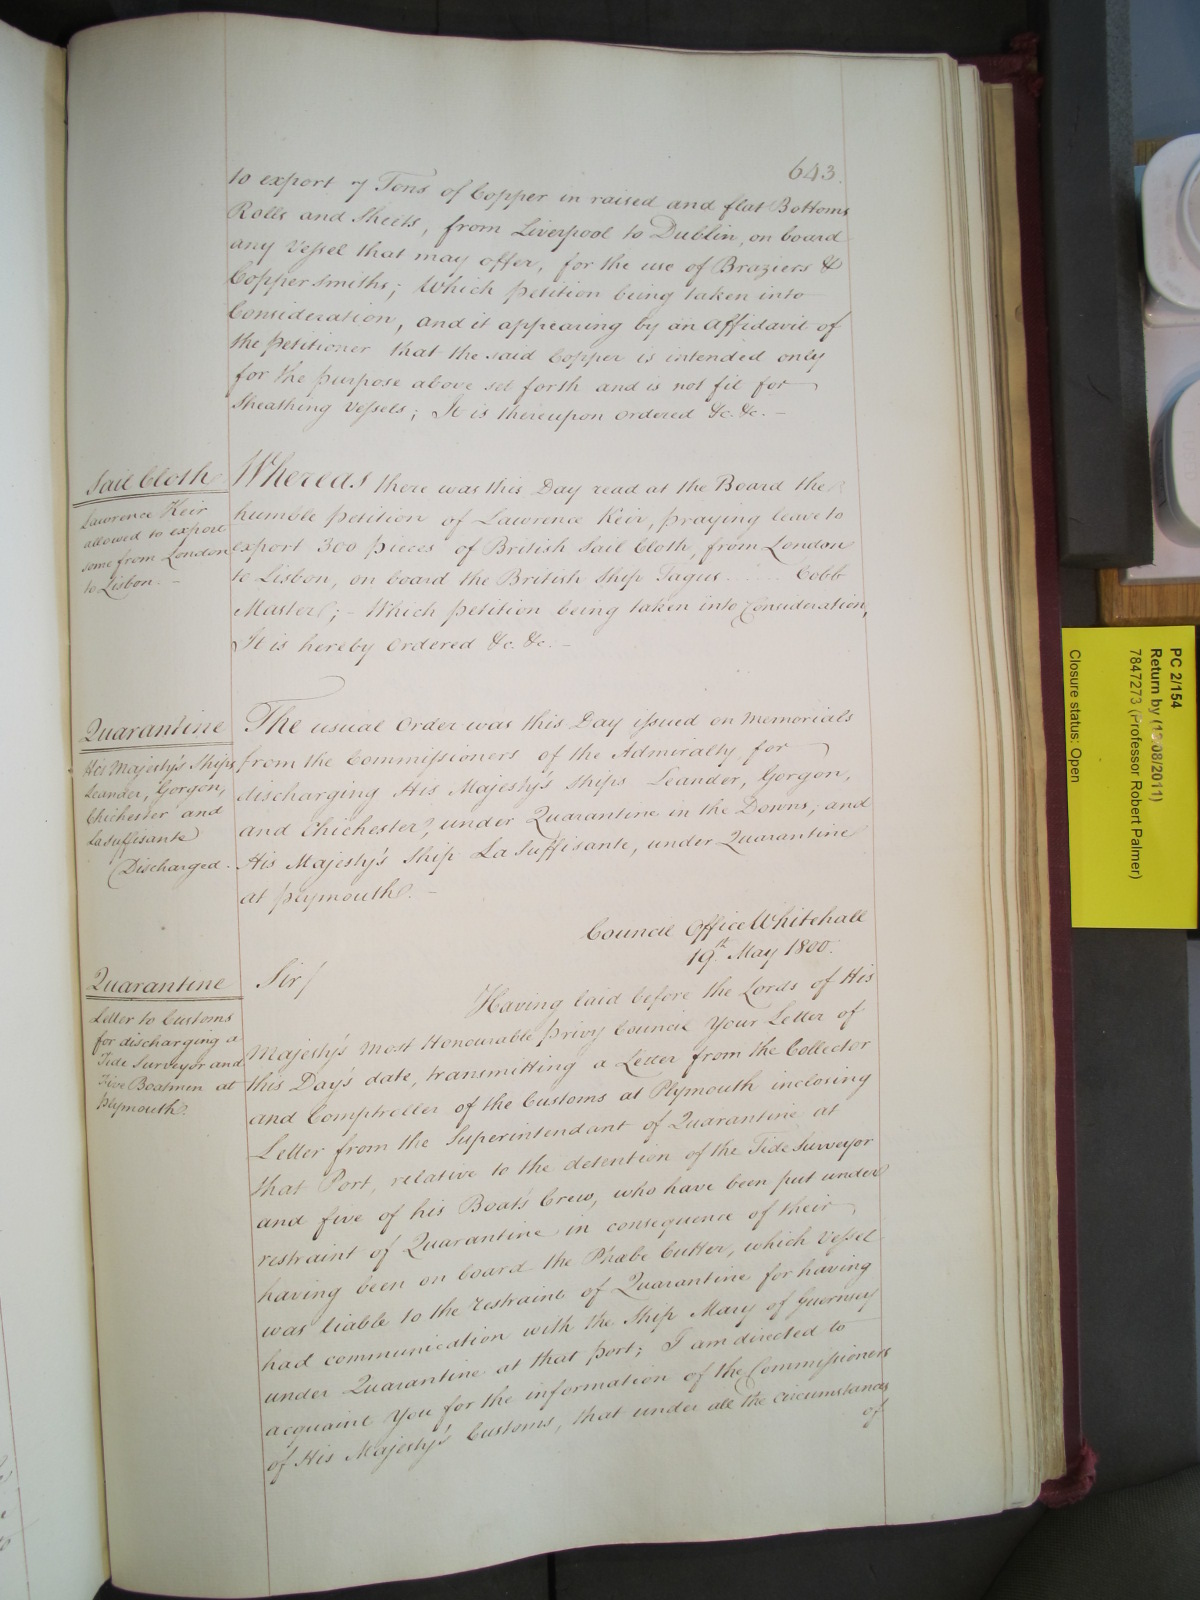 643.
to export 7 Tons of Copper in raised and flat Bottoms
Rolls and Sheets, from Liverpool to Dublin, on board
any Vessel that may offer, for the use of Braziers &
Coppersmiths; Which petition being taken into
Consideration, and it appearing by an Affidavit of
the Petitioner that the said Copper is intended only
for the purpose above set forth and is not fit for
Sheathing Vessels; It is thereupon ordered &c. &c. –
Sail Cloth
Lawrence Keir
allowed to export
some from London
to Lisbon. –
Whereas there was this Day read at the Board the
humble petition of Lawrence Keir, praying leave to
export 300 pieces of British Sail Cloth, from London
to Lisbon, on board the British Ship Tagus ...... Cobb
Master; – Which petition being taken into Consideration,
It is hereby Ordered &c. &c. –
Quarantine
His Majesty's Ships
Leander, Gorgon,
Chichester and
La Suffisante
Discharged.
The usual Order was this Day issued on Memorials
from the Commissioners of the Admiralty for
discharging His Majesty's Ships Leander, Gorgon,
and Chichester, under Quarantine in the Downs; and
His Majesty's Ship La Suffisante, under Quarantine
at Plymouth. –
Council Office Whitehall
19th May 1800.
Quarantine
Letter to Customs
for discharging a
Tide Surveyor and
Five Boatmen at
Plymouth.
Sir/
Having laid before the Lords of His
Majesty's Most Honourable Privy Council Your Letter of
this Day's date, transmitting a Letter from the Collector
and Comptroller of the Customs at Plymouth inclosing
Letter from the Superintendant of Quarantine at
that Port, relative to the detention of the Tide Surveyor
and five of his Boat's Crew, who have been put under
restraint of Quarantine in consequence of their
having been on board the Phœbe Cutter, which Vessel
was liable to the restraint of Quarantine for having
had communication with the Ship Mary of Guernsey
under Quarantine at that port; I am directed to
acquaint You for the information of the Commissioners
of His Majesty's Customs, that under all the circumstances
of
PC 2/154
Return by (1 08/2011)
7847273 (Professor Robert Palmer)
Closure status: Open